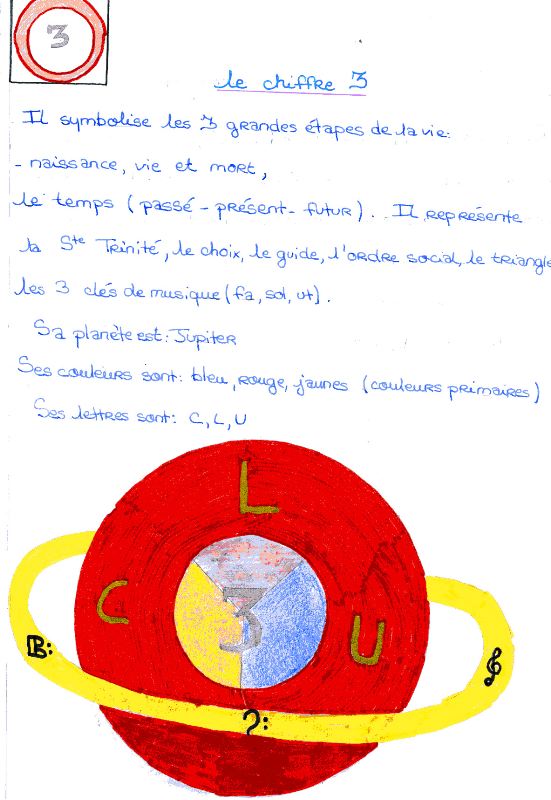 3
le chiffre 3
Il symbolise les 3 grandes étapes de la vie:
- naissance, vie et mort,
le temps (passé - présent - futur). Il représente
la Ste Trinité, le choix, le guide, l'ordre social, le triangle
les 3 clés de musique (fa, sol, ut).
Sa planète est: Jupiter
Ses couleurs sont: bleu, rouge, jaunes (couleurs primaires)
Ses lettres sont: C, L, U
L
C
3
U